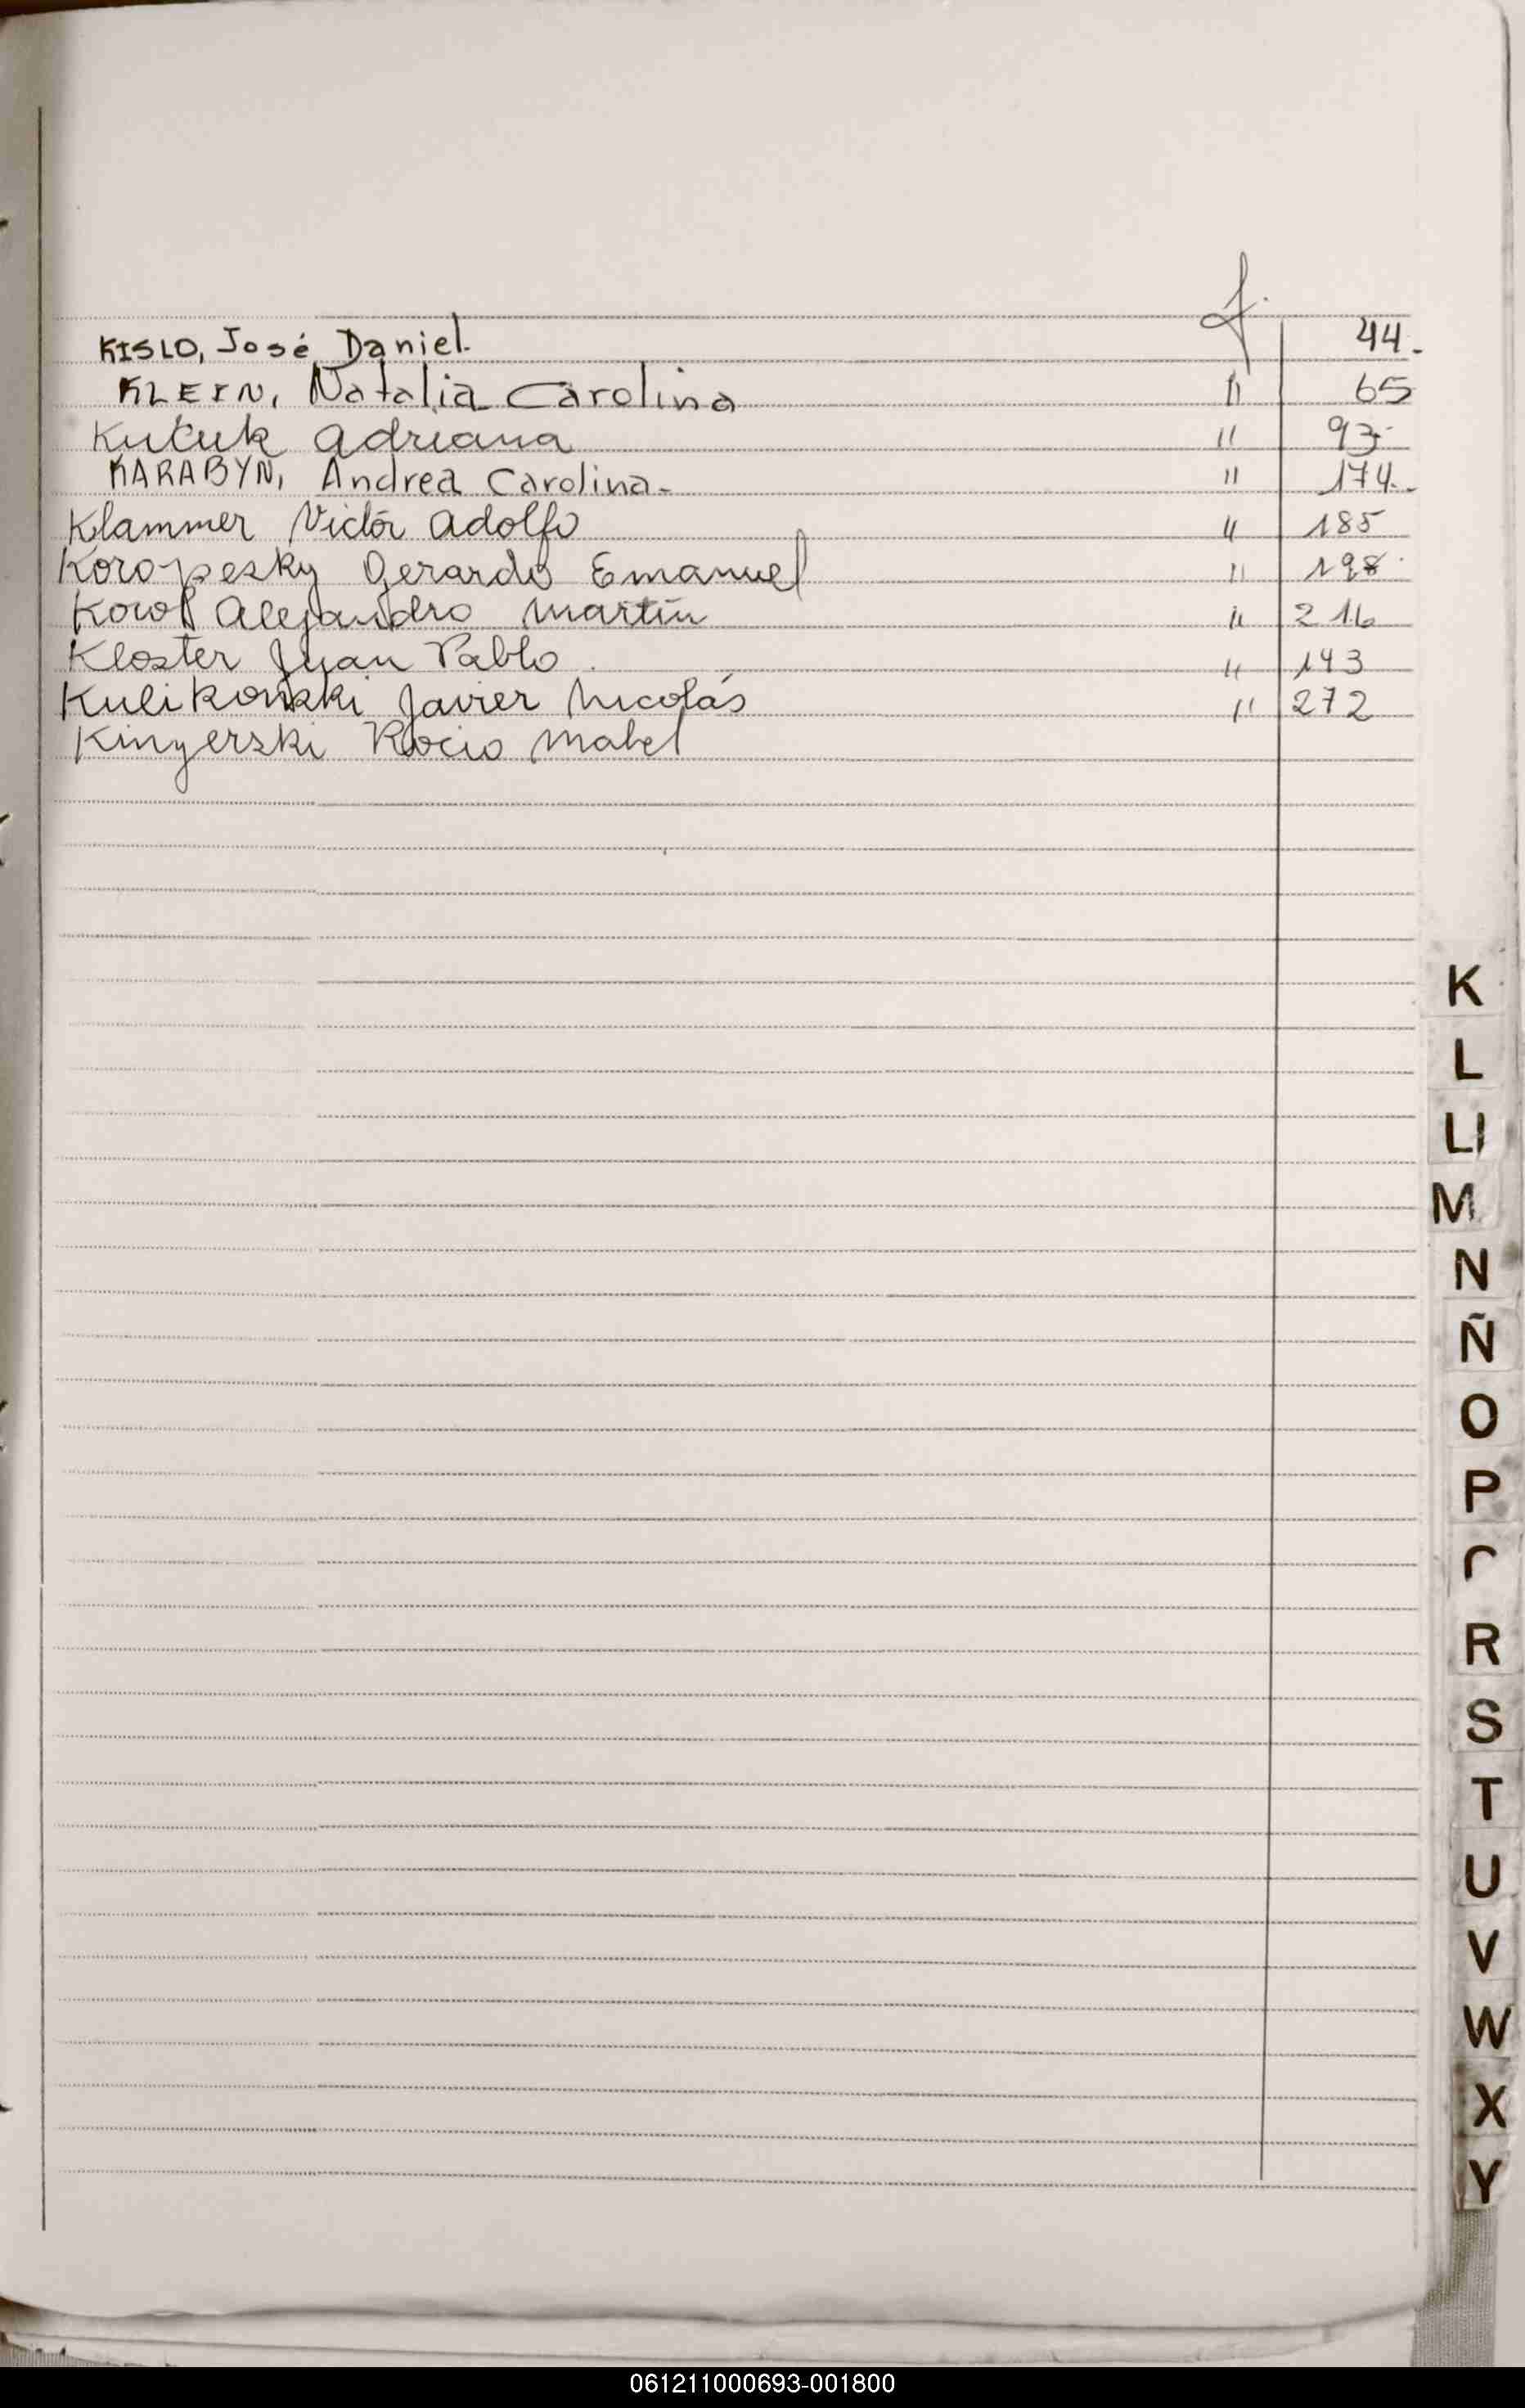 f.
KISLO, José Daniel. 44.
KLEIN, Natalia Carolina " 65
Kučuk Adriana " 93
KARABYN, Andrea Carolina - " 174.
Klammer Victór Adolfo " 185
Koropesky Gerardo Emanuel " 198
Korol Alejandro Martín " 216
Kloster Juan Pablo. " 143
Kulikouski Javier Nicolás " 272
Kinyerski Rocio Mabel
K
L
Ll
M
N
Ñ
O
P
R
S
T
U
V
W
X
Y
061211000693-001800